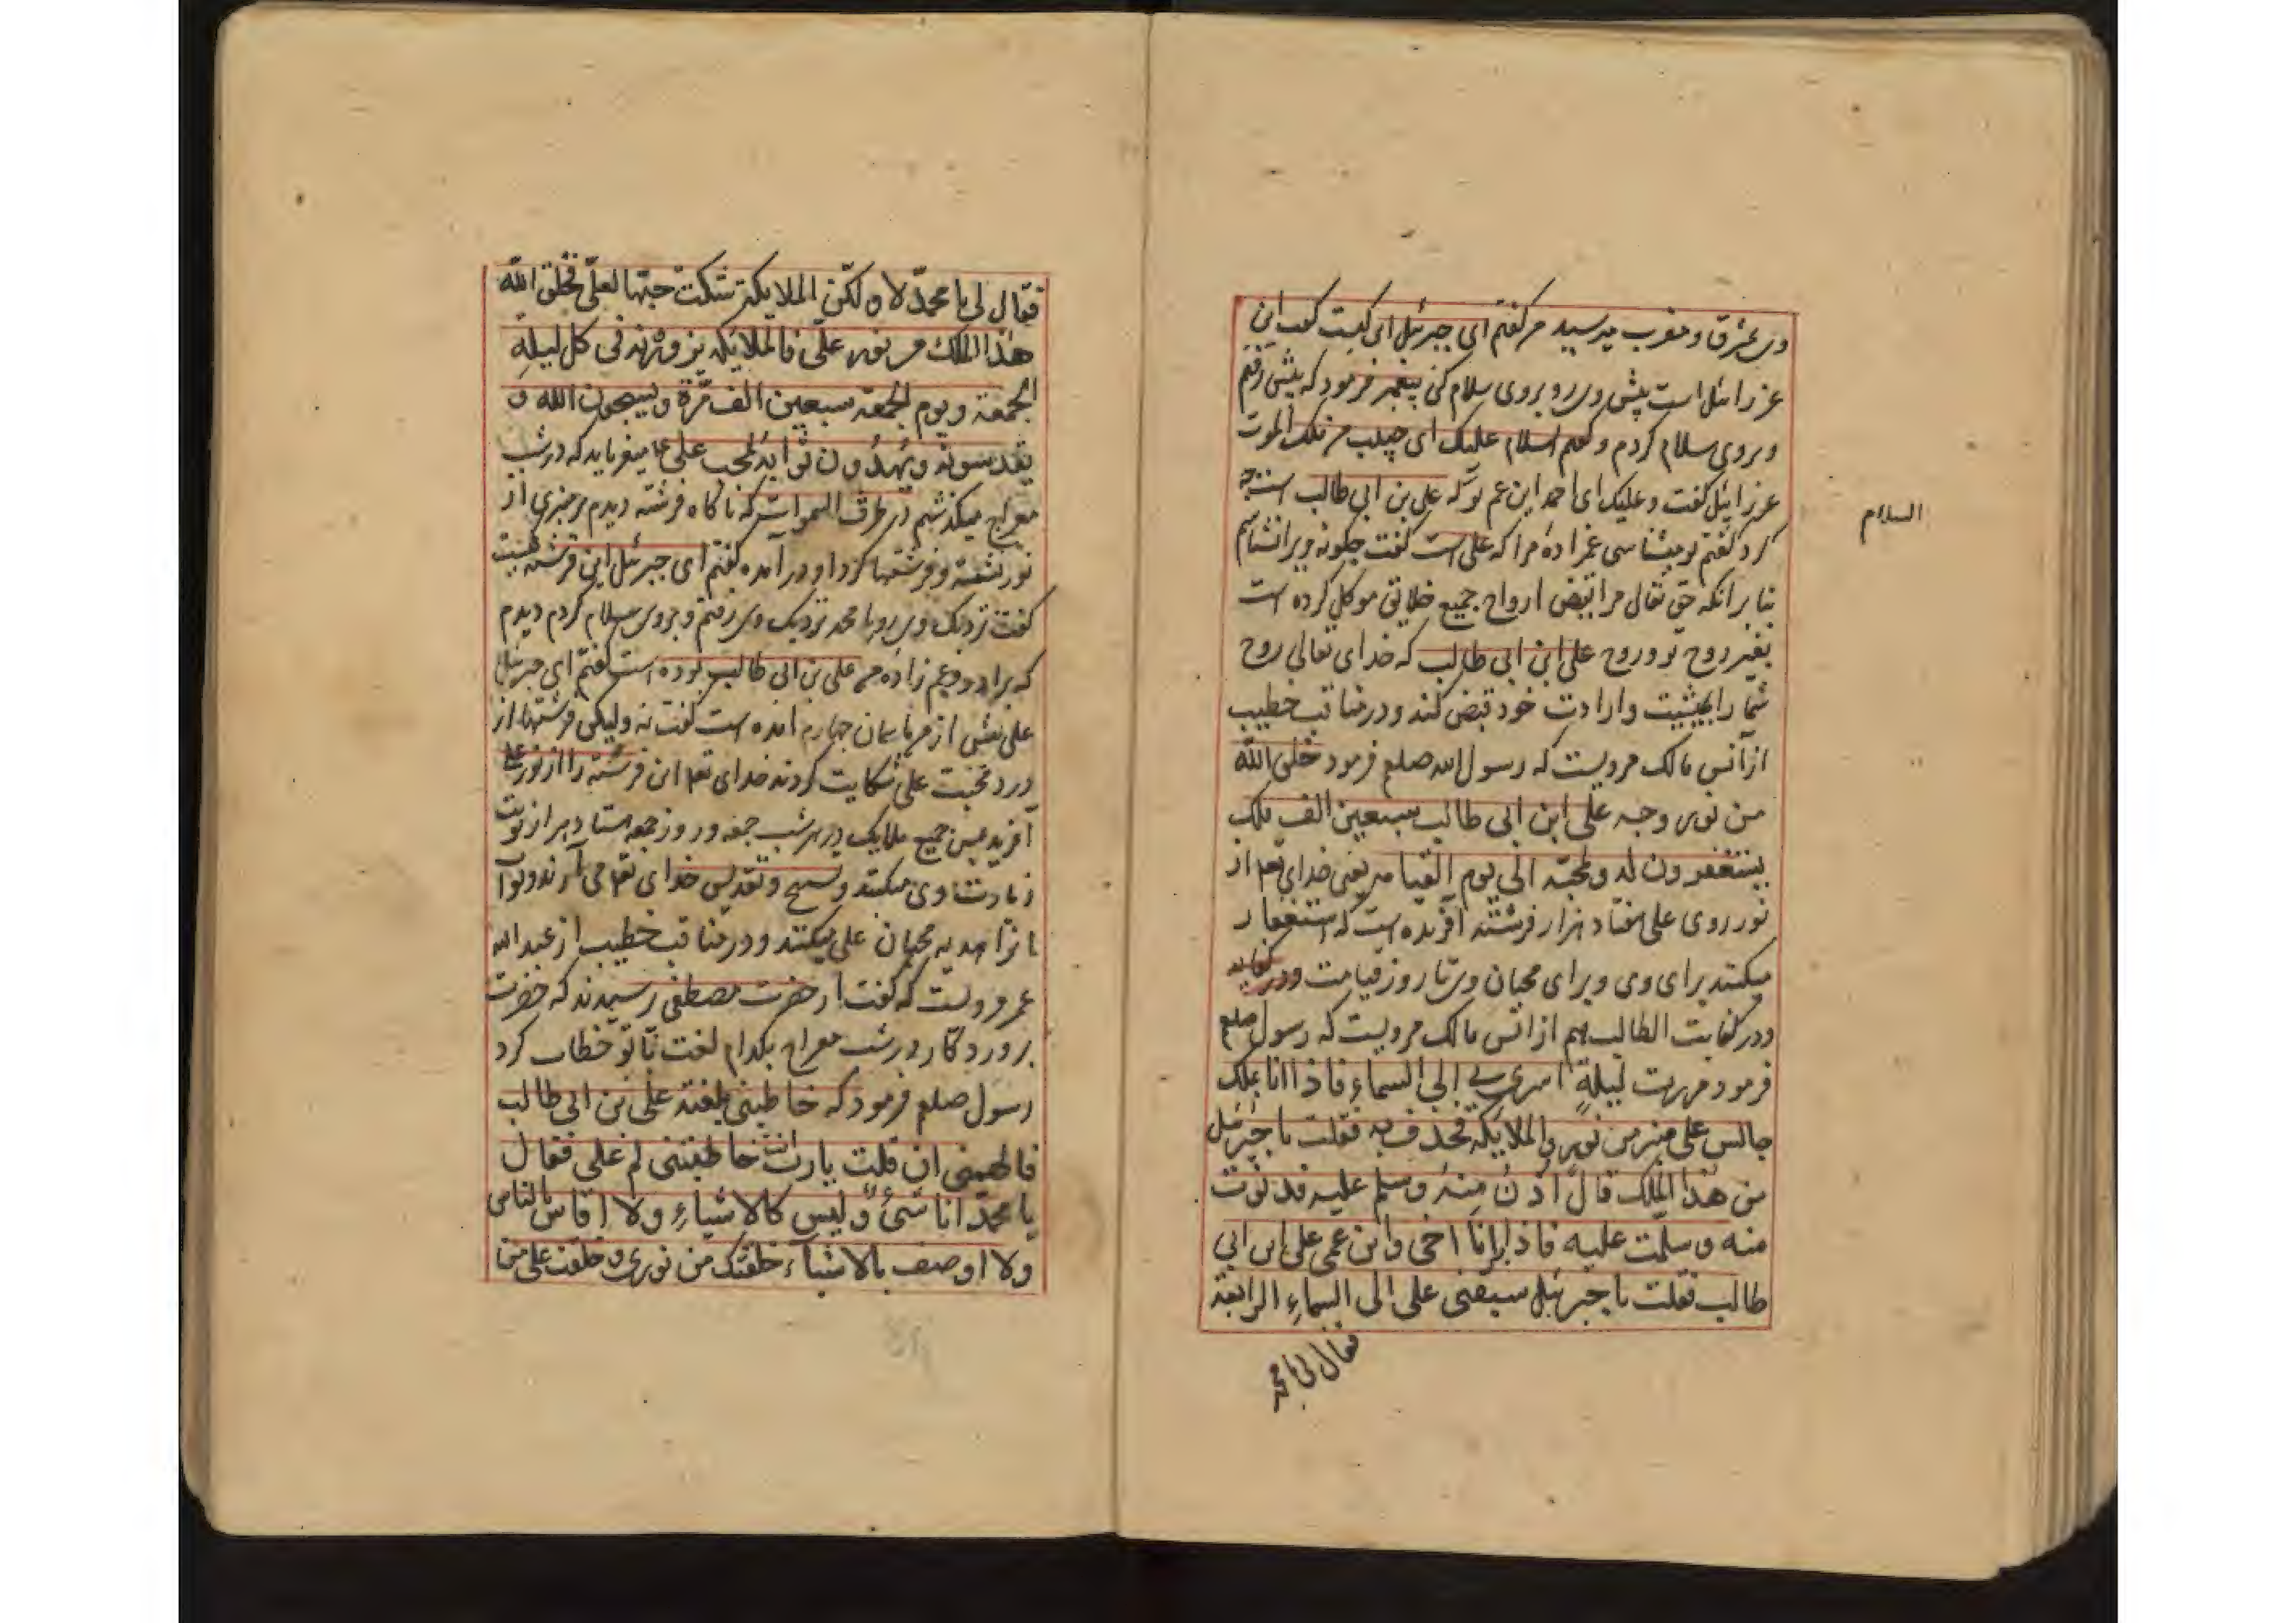 وی بمشرق و مغرب میرسید من گفتم ای جبرئیل این کیست گفت این
عزرائیل است پیش وی رو و بروی سلام کن پیغمبر فرمود که پیش رفتم
و بروی سلام کردم و گفتم السلام علیک ای حبیب من ملک الموت
عزرائیل گفت و علیک ای احمد ابن عم تو که علی بن ابی طالب است چه
السلام
کرد گفتم تو میشناسی عمزاده مرا که علی است گفت چگونه ویرا نشناسم
بنابر آنکه حق تعالی مرا بقبض ارواح جمیع خلایق موکل کرده است
بغیر روح تو و روح علی ابن ابی طالب که خدای تعالی روح
شما را بمشیت و ارادت خود قبض کند و در مناقب خطیب
از انس مالک مرویست که رسول الله صلعم فرمود خلق الله
من نور وجه علی ابن ابی طالب سبعین الف ملک
یستغفرون له و لمحبّه الی یوم القیامه یعنی خدای تعه از
نور روی علی هفتاد هزار فرشته آفریده است که استغفار
میکنند برای وی و برای محبان وی تا روز قیامت و در کفایه
و در کفایت الطالب هم از انس مالک مرویست که رسول صلعم
فرمود مررت لیلةً اسری بی الی السماء فاذا انا بملک
جالس علی منبر من نور و الملایکة تحدف به فقلت یا جبرئیل
من هذا الملک قال ادن منه و سلم علیه فدنوت
منه و سلمت علیه فاذا انا اخی و ابن عمی علی ابن ابی
طالب فقلت یا جبرئیل سبقنی علی الی السماء الرابعة
فقال لی یا محمد
فقال لی یا محمدّ لا و لکنّ الملایکة شکت حبّها لعلیّ فخلق الله
هذا الملک من نور علّی فالملائکه یزورونه فی کل لیلةِ
الجمعة و یوم الجمعة سبعین الف مّرة و یسبحون الله و
یقدسونه و یهدون ثوابه لمحب علی ع میفرماید که در شب
معراج میگذشتم در طرف السموات که ناگاه فرشته دیدم بر منبری از
نور نشسته و فرشتها گرد او درآمده گفتم ای جبرئیل این فرشته کیست
گفت نزدیک وی رو یا محمد نزدیک وی رفتم و بروی سلام کردم دیدم
که برادر و عم زاده من علی بن ابی طالب بوده است گفتم ای جبرئیل
علی پیش از من بآسمان چهارم آمده است گفت نه ولیکن فرشتها از
درد محبت علی شکایت کردند خدای تعه این فرشته را از نور علی
آفرید پس جمیع ملایک در هر شب جمعه و روز جمعه هفتاد هزار نوبت
زیارت وی میکنند و تسبیح و تقدیس خدای تعه می آرند و ثواب
آنرا هدیه محبان علی میکنند و در مناقب خطیب از عبد الله
عمر مرویست که گفت از حضرت مصطفی پرسیدند که حضرت
پروردگار در شب معراج بکدام لغت با تو خطاب کرد
رسول صلعم فرمود که خاطبنی بلغة علی بن ابی طالب
فالهمنی ان قلت یا رب انت خاطبتنی ام علی فقال
یا محمدّ انا شئ و لیس کالاشیاءِ و لا اقاس بالناس
و لا اوصف بالاشیآء خلقتک من نوری و خلقت علی من